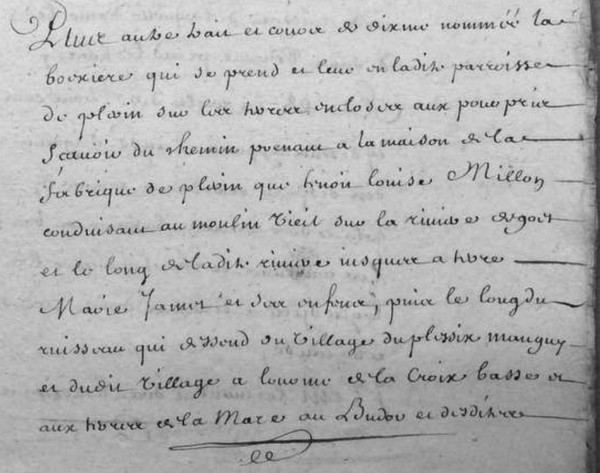 Plus autre trait et convoi de dixme nommée la
boexiere qui se prend et leve en ladite parroisse
de plain sur les terres encloses aux pourpris
scavoir du chemin prenant a la maison de la
fabrique de plain que tenoit louise Millon
conduisant au moulin vieil sur la riviere de goet
et le long de ladite riviere jusques a terre
Marie Jamet et ses enfens, puis le long du
ruisseau qui dessend du village du plessix mauguy
et dudit village a lorome de la Croix basse et
aux terres de la Mare au Budou et desdittes